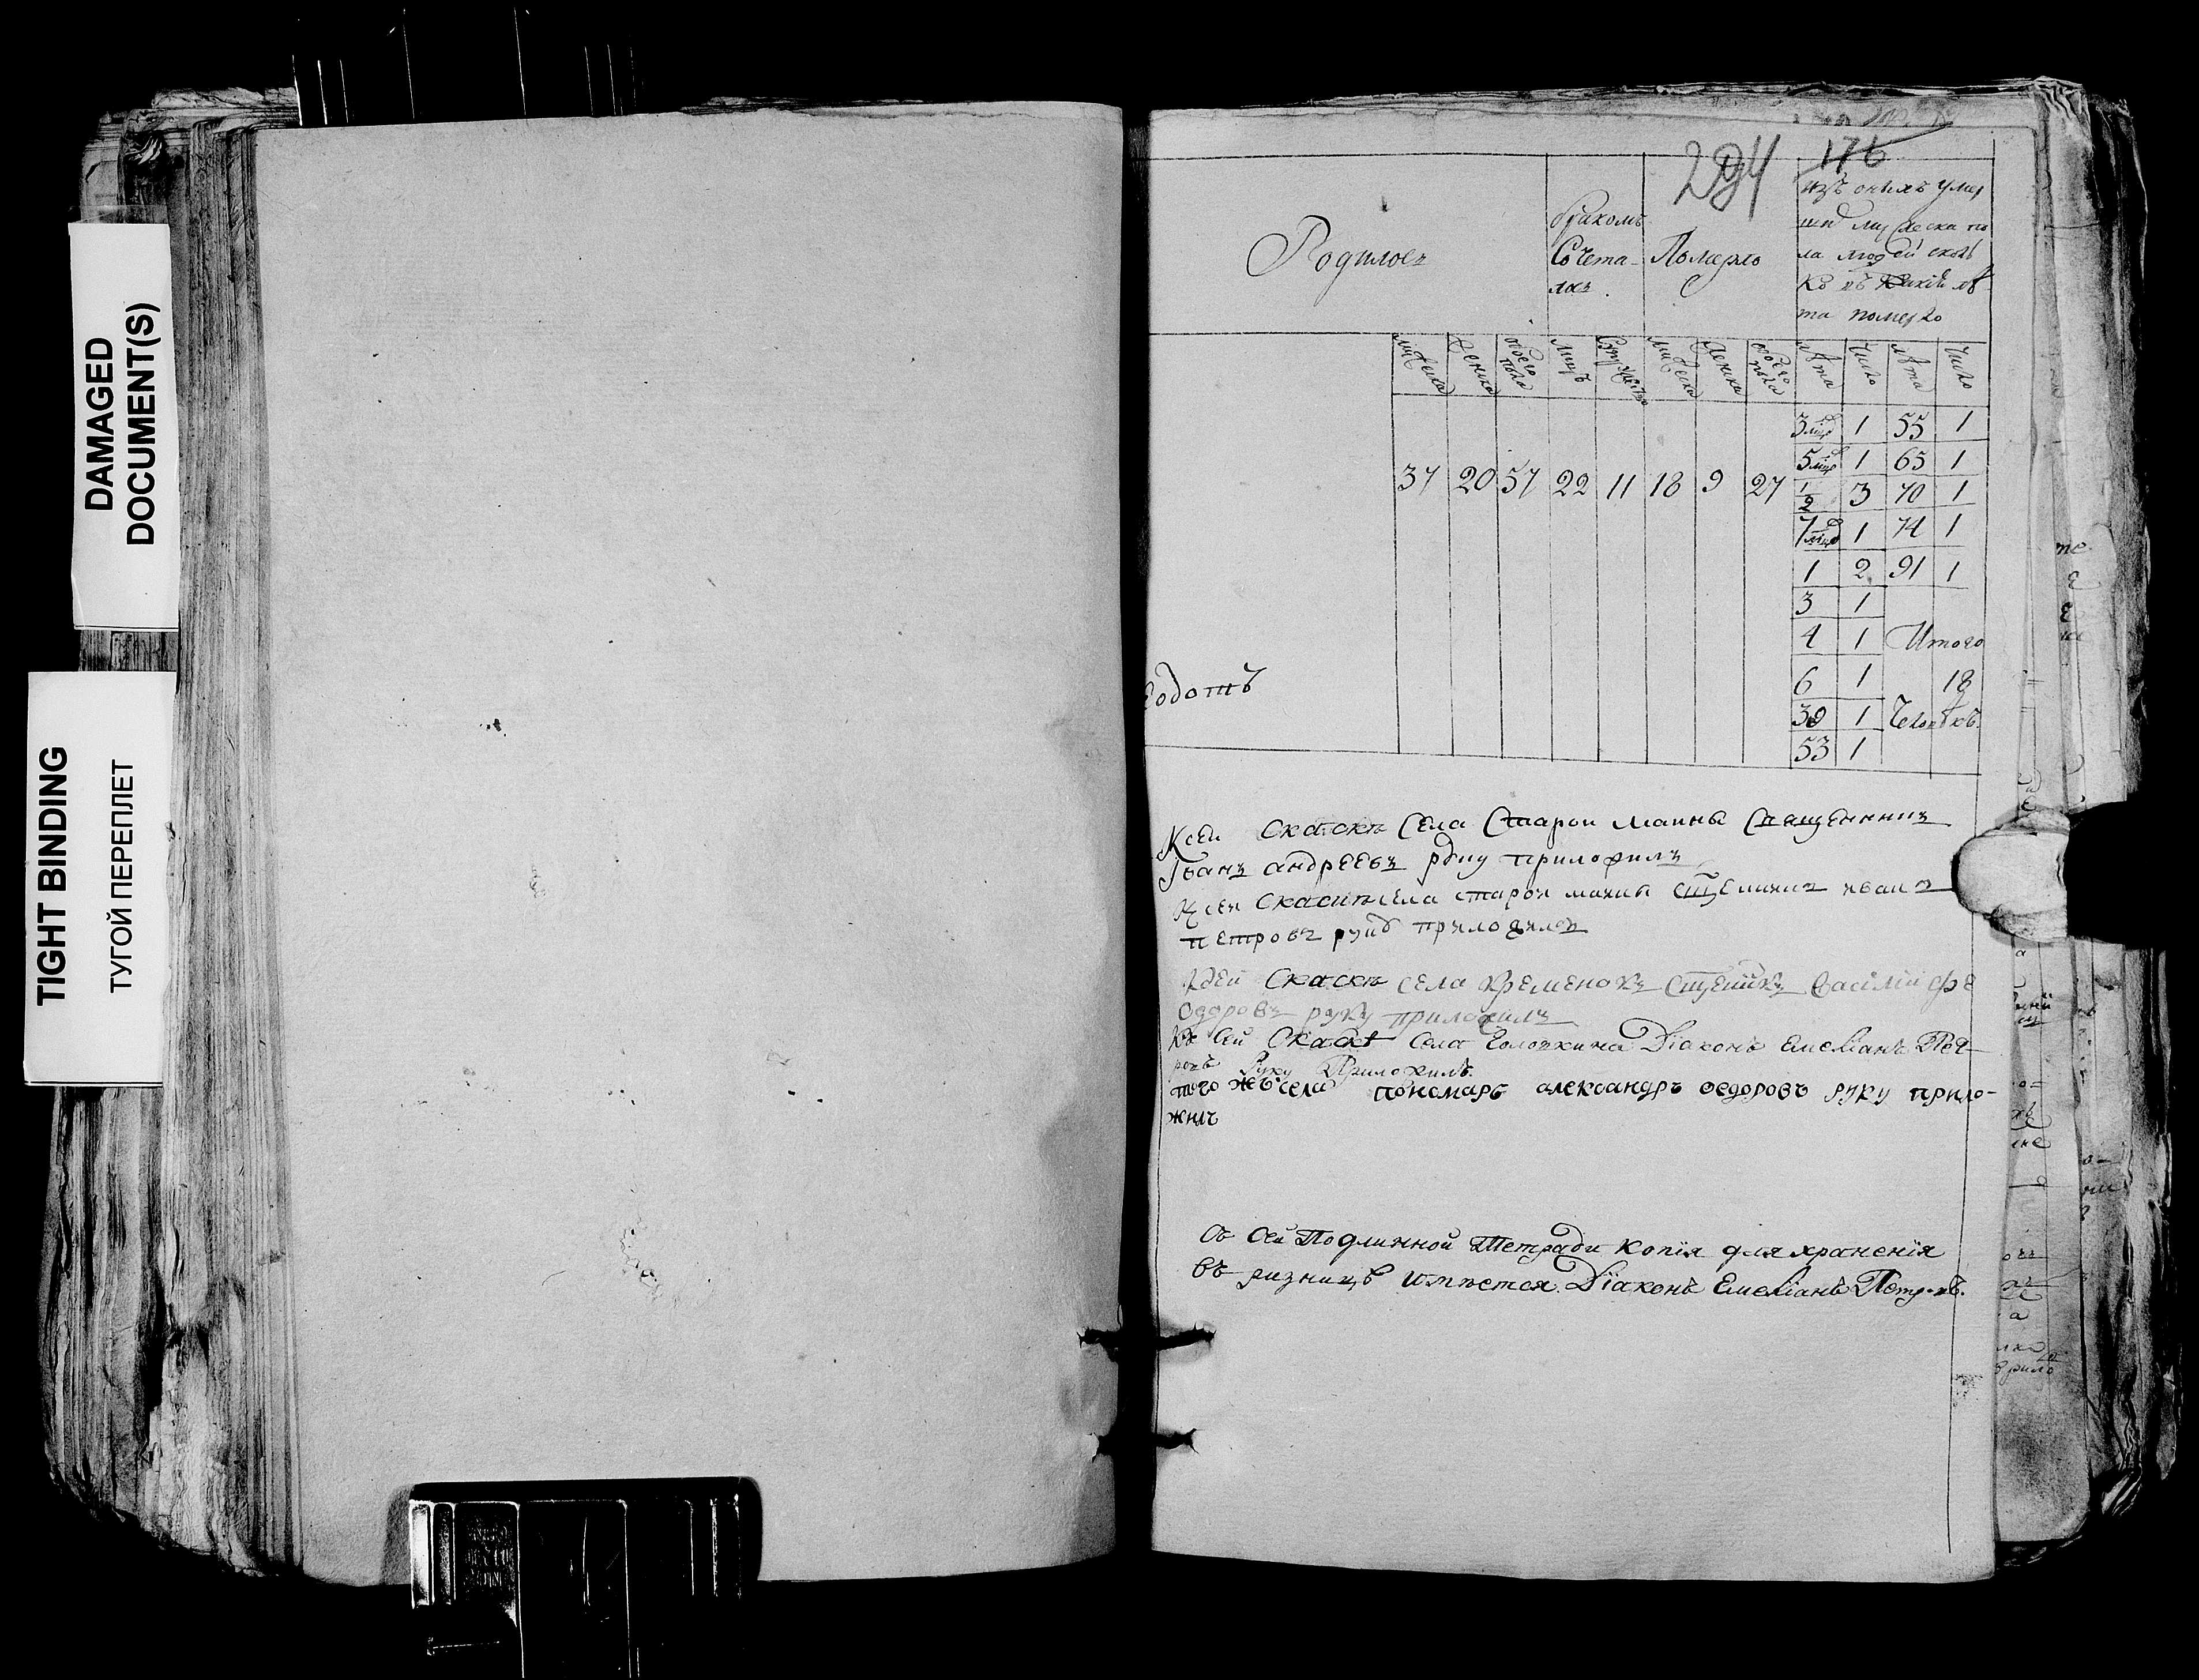 DAMAGED
DOCUMENT(S)
TIGHT BINDING
ТУГОЙ ПЕРЕПЛЕТ
294
176
Родилось
бракомъ
Сочета-
лось
Померло
изъ оныхъ умер
ших муζеска по
ла людей сколь
ко въ какїи лѣ-
та померло
муζеска
женска
обоего пола
лицъ
Супружествъ
муζеска
женска
обоего пола
лѣта
число
лѣта
число
37 20 57 22 11 18 9 27
3 мцд 1 55 1
5 мцд 1 65 1
1/2 3 70 1
7 мцд 1 74 1
1 2 91 1
3 1
4 1 Итого
6 1 18
39 1 Человѣкъ.
53 1
Ксеи скаскѣ Села Старои маины Священникъ
Іванъ андреевъ руку приложилъ
Ксеи скаски села старои маины сщенникъ иванъ
петровъ руку приложилъ
Ксеи скаскѣ села Кременокъ сщенникъ василїй фе
одоровъ руку приложилъ
Къ сеи скаскѣ села Головкина Дїаконъ Емелїанъ Пет-
ровъ Руку Приложилъ.
того жъ села пономарь александръ ѳедоровъ руку прило-
жилъ
Съ сей Подлинной Тетради копїя для храненїя
въ ризницѣ имѣется. Дїаконъ Емелїанъ Петровъ.